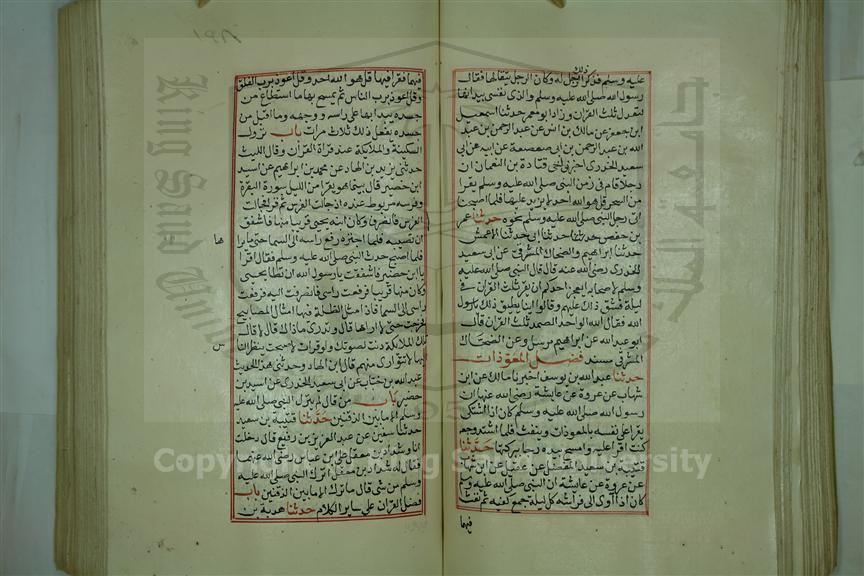 عليه وسلم فذكر ذلك له وكان الرجل يتقالها فقال
رسول الله صلى الله عليه وسلم والذي نفسي بيده انها
لتعدل ثلث القران وزاد ابو معمر حدثنا اسمعيل
ابن جعفر عن مالك بن انس عن عبد الرحمن بن عبد
الله بن عبد الرحمن بن ابي صعصعة عن ابيه عن ابي
سعيد الخدري اخبرني اخي قتادة بن النعمان ان
رجلا قام في زمن النبي صلى الله عليه وسلم يقرا
من السحر قل هو الله احد لا يزيد عليها فلما اصبحنا
اتى رجل النبي صلى الله عليه وسلم نحوه حدثنا عمر
بن حفص حدثنا ابي حدثنا الاعمش
حدثنا ابراهيم والضحاك المشرقي عن ابي سعيد
الخدري رضي الله عنه قال قال النبي صلى الله عليه
وسلم لاصحابه ايعجز احدكم ان يقرا ثلث القران في
ليلة فشق ذلك عليهم وقالوا اينا يطيق ذلك يارسول
الله فقال الله الواحد الصمد ثلث القران قال
ابو عبد الله عن ابراهيم مرسل وعن الضحاك
المشرقي مسند فضل المعوذات
حدثنا عبد الله بن يوسف اخبرنا مالك عن ابن
شهاب عن عروة عن عايشة رضي الله عنها ان
رسول الله صلى الله عليه وسلم كان اذا اشتكى
يقرا على نفسه بالمعوذات وينفث فلما اشتد وجعه
كنت اقرا عليه وامسح بيده رجا بركتها حدثنا
قتيبة بن سعيد المفضل عن عقيل عن ابن شهاب
عن عروة عن عايشة ان النبي صلى الله عليه وسلم
كان اذا اوى الى فراشه كل ليلة جمع كفيه ثم نفث
فيهما
فيهما فقرا فيهما قل هو الله احد وقل اعوذ برب الفلق
وقل اعوذ برب الناس ثم يمسح بهما ما استطاع من
جسده يبدا بهما على راسه ووجهه وما اقبل من
جسده يفعل ذلك ثلاث مرات باب نزول
السكينة والملايكة عند قراة القران وقال الليث
حدثني يزيد بن الهاد عن محمد بن ابراهيم عن اسيد
ابن حضير قال بينما هو يقرا من الليل سورة البقرة
وفرسه مربوط عنده اذ جالت الفرس ثم قرا فجالت
الفرس فانصرف وكان ابنه يحيى قريبا منها فاشفق
ان تصيبه فلما اجتره رفع راسه الى السما حتى ما يراها
فلما اصبح حدث النبي صلى الله عليه وسلم فقال اقرا
يا ابن حضير فاشفقت يارسول الله ان تطا يحيى
وكان منها قريبا فرفعت راسي فانصرفت اليه فرفعت
راسي الى السما فاذا مثل الظلة فيها امثال المصابيح
فخرجت حتى لا اراها قال وتدري ما ذاك قال لا قال
تلك الملايكة دنت لصوتك ولو قرات لاصبحت ينظر الناس
اليها لا تتوارى منهم قال ابن الهاد وحدثني هذا الحديث
عبد الله بن خباب عن ابي سعيد الخدري عن اسيد بن
حضير باب من قال لم يترك النبي صلى الله عليه
وسلم الا ما بين الدفتين حدثنا قتيبة بن سعيد
حدثنا سفين عن عبد العزيز بن رفيع قال دخلت
انا وشداد بن معقل على ابن عباس رضي الله عنهما
فقال له شداد بن معقل اترك النبي صلى الله عليه
وسلم من شي قال ما ترك الا ما بين الدفتين باب
فضل القران على ساير الكلام حدثنا هدبة بن
King Saud University
جامعة الملك
1957
Copyright © King Saud University